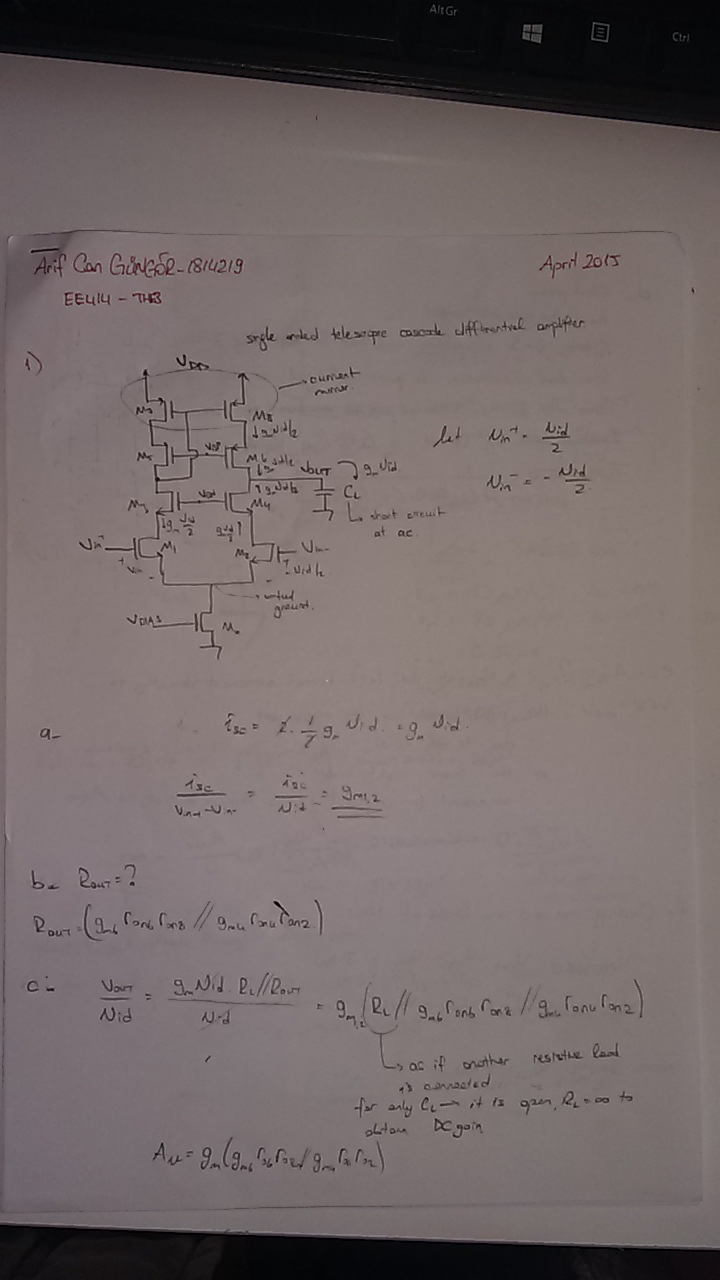 AltGr
Ctrl
Arif Can GÜNGÖR-1814219
April 2015
EE414 - TH3
single ended telescopic cascode differential amplifier
1)
VDD
current
mirror
M8
↓gmVid/2
let Vin+ = Vid/2
Vin- = -Vid/2
M6
VOUT
gmVid
M4
CL
short circuit
at ac.
Vin+
M1
M2
Vin-
-Vid/2
ground.
VBIAS
M0
a- isc = 2 · 1/2 gm Vid = gm Vid.
isc/(Vin+-Vin-) = isc/Vid = gm1,2
b- ROUT=?
ROUT=(gm6 ron6 ron8 // gm4 ron4 ron2)
c- VOUT/Vid = gm Vid. RL//ROUT / Vid = gm1,2 (RL // gm6 ron6 ron8 // gm4 ron4 ron2)
as if another resistive load
is connected
for only CL → it is open, RL=∞ to
obtain DC gain